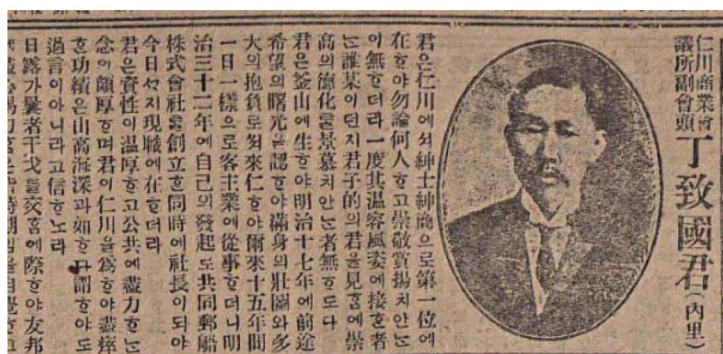 仁川商業會
議所副會頭
丁致國君(內里)
君은仁川에셔紳士紳商으로第一位에
在ᄒᆞ야勿論何人ᄒᆞ고崇敬賞揚치안ᄂᆞᆫ
이無ᄒᆞ더라一度其温容風姿에接ᄒᆞᆫ者
ᄂᆞᆫ誰某이던지君子的의君을見ᄒᆞᆷ에崇
高의德化ᄅᆞᆯ景慕치안ᄂᆞᆫ者無ᄒᆞ도다
君은釜山에生ᄒᆞ야明治十七年에前途
希望의曙光을認ᄒᆞ야滿身의壯圖와多
大의抱負로써來仁ᄒᆞ야爾來十五年間
一日一樣으로客主業에從事ᄒᆞ더니明
治三十二年에自己의發起로共同郵船
株式會社ᄅᆞᆯ創立ᄒᆞᆫ同時에社長이되야
今日ᄭᅡ지現職에在ᄒᆞ더라
君은資性이温厚ᄒᆞ고公共에盡力ᄒᆞᄂᆞᆫ
念이頗厚ᄒᆞ며君이仁川을爲ᄒᆞ야盡瘁
ᄒᆞᆫ功績은山高海深과如ᄒᆞ다謂ᄒᆞ야도
過言이아니라고信ᄒᆞ노라
日露가曩者干戈ᄅᆞᆯ交ᄒᆞᆷ에際ᄒᆞ야友邦